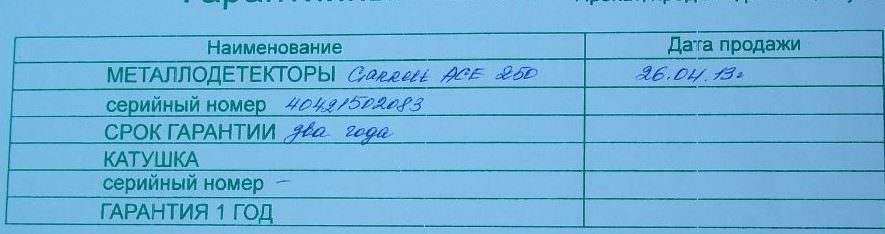 Наименование Дата продажи
МЕТАЛЛОДЕТЕКТОРЫ Garrett ACE 250 26.04.13г
серийный номер 40421502083
СРОК ГАРАНТИИ два года
КАТУШКА
серийный номер –
ГАРАНТИЯ 1 ГОД